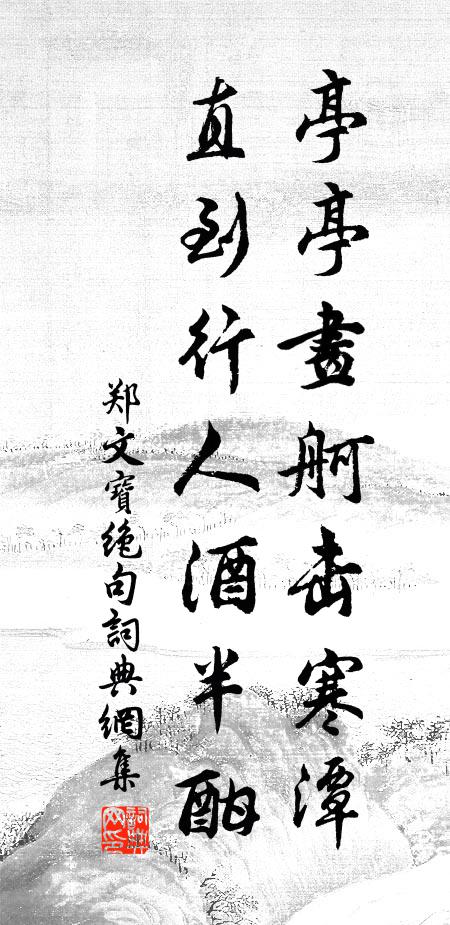 亭亭畫舸击寒潭
直到行人酒半酣
郑文寶絶句詞典網集